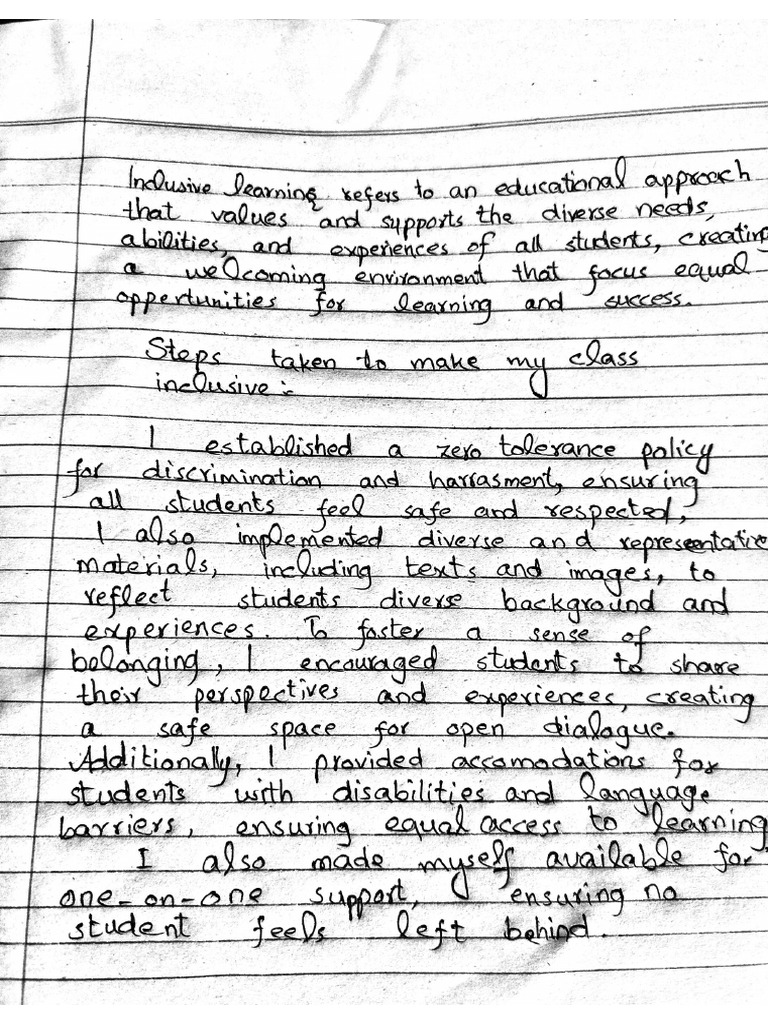 Inclusive learning refers to an educational approach
that values and supports the diverse needs,
abilities, and experiences of all students, creating
a welcoming environment that focus equal
oppertunities for learning and success.
Steps taken to make my class
inclusive :-
I established a zero tolerance policy
for discrimination and harrasment, ensuring
all students feel safe and respected,
I also implemented diverse and representative
materials, including texts and images, to
reflect students diverse background and
experiences. To foster a sense of
belonging, I encouraged students to share
their perspectives and experiences, creating
a safe space for open dialogue.
Additionally, I provided accomodations for
students with disabilities and language
barriers, ensuring equal access to learning
I also made myself available for
one-on-one support, ensuring no
student feels left behind.